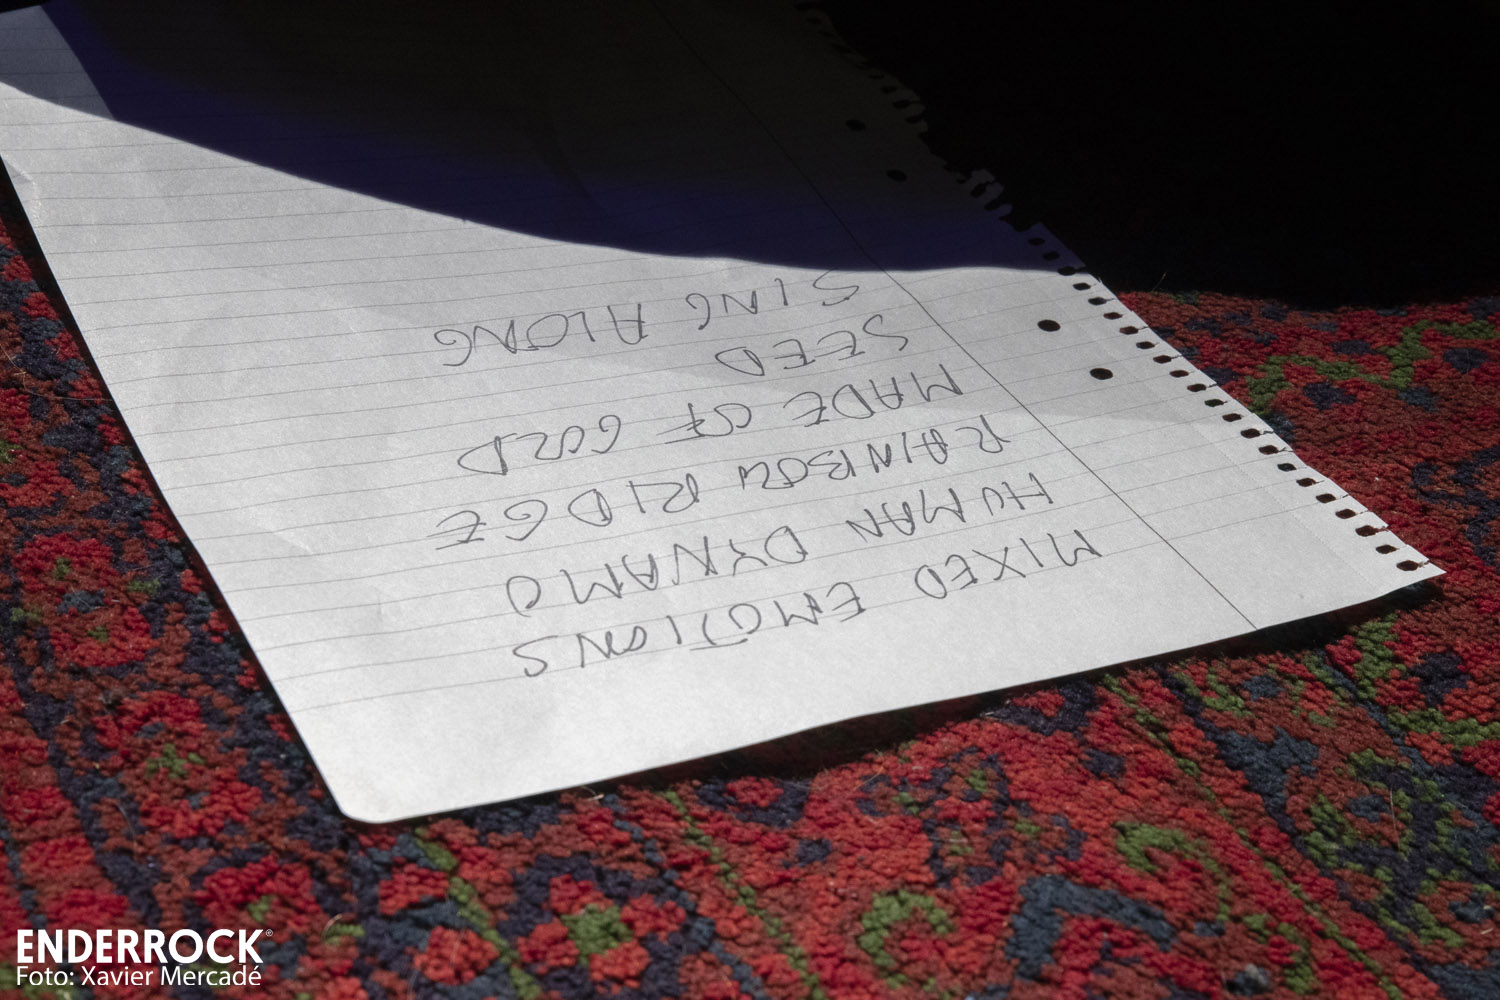 MIXED EMOTIONS
HUMAN DYNAMO
RAINBOW RIDGE
MADE OF GOLD
SEED
SING ALONG
ENDERROCK®
Foto: Xavier Mercadé